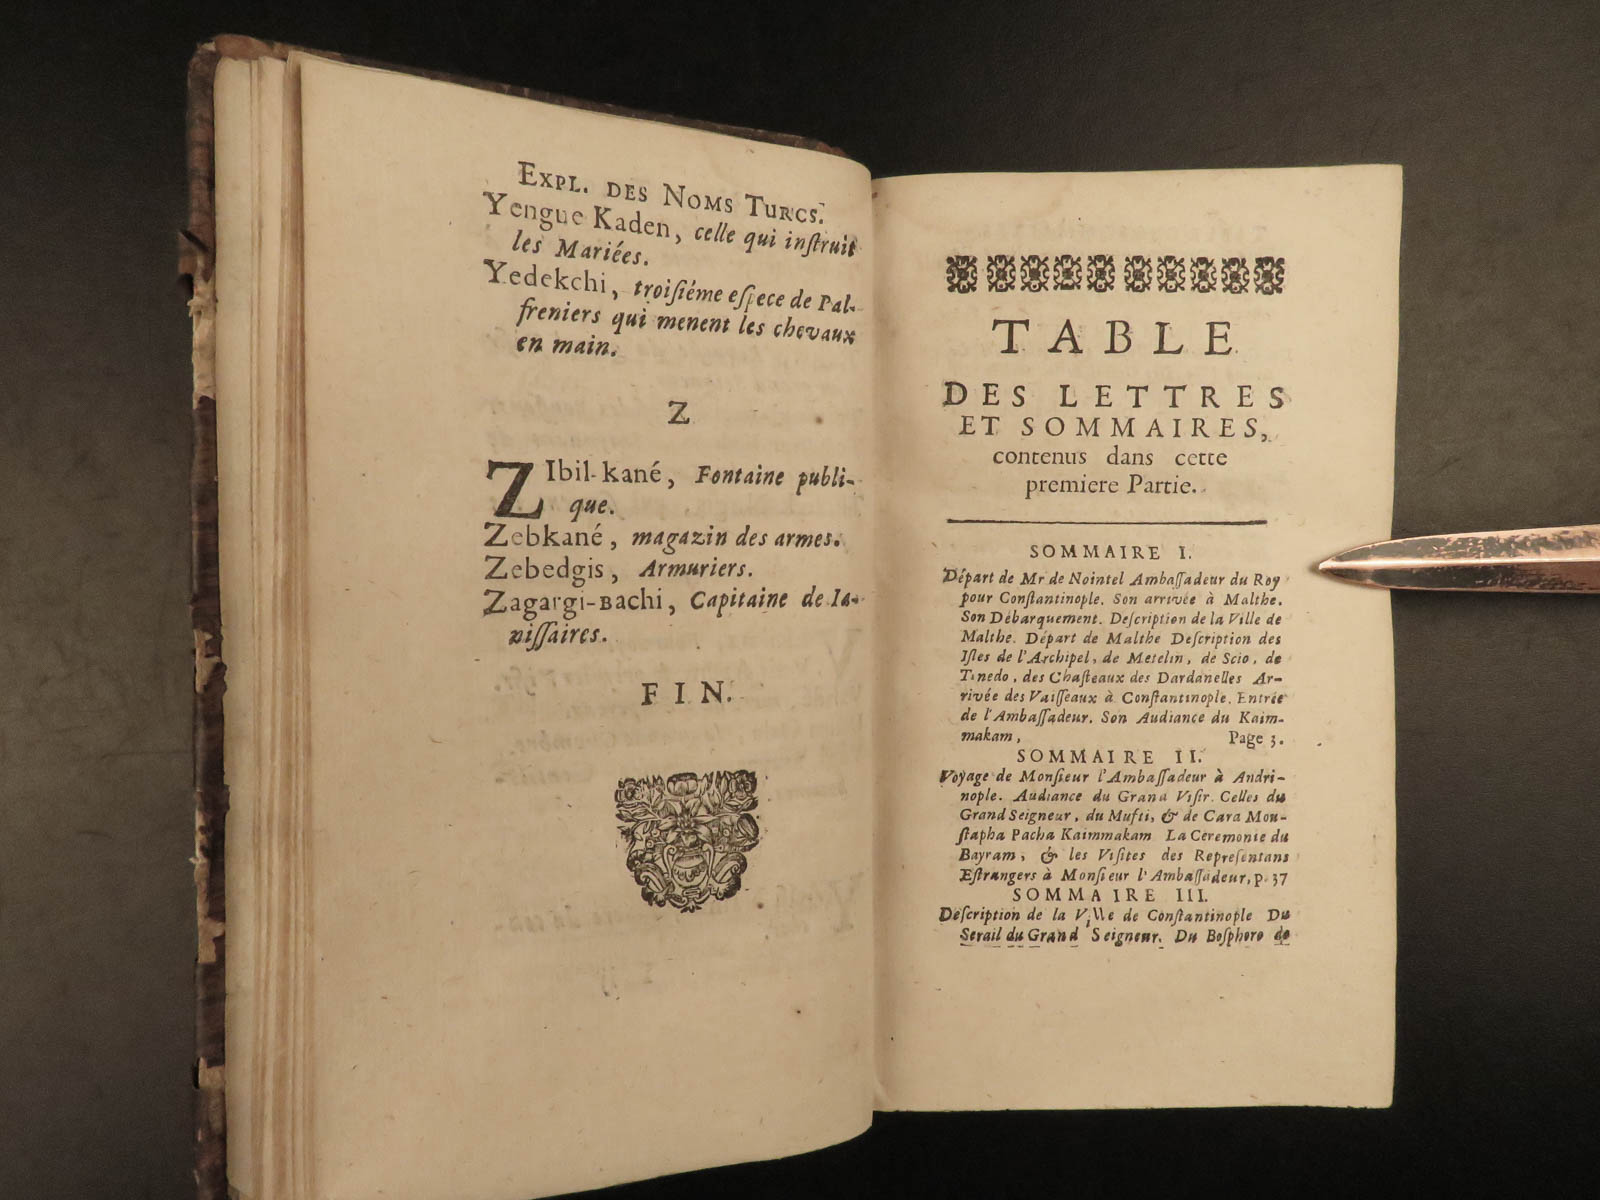 EXPL. DES NOMS TURCS.
Yengue Kaden, celle qui inſtruit
les Mariées.
Yedekchi, troiſiéme eſpece de Pal-
freniers qui menent les chevaux
en main.
Z
ZIbil-kané, Fontaine publi-
que.
Zebkané, magazin des armes.
Zebedgis, Armuriers.
Zagargi-BAchi, Capitaine de Ia-
niſſaires.
FIN.
TABLE
DES LETTRES
ET SOMMAIRES,
contenus dans cette
premiere Partie.
SOMMAIRE I.
Départ de Mr de Nointel Ambaſſadeur du Roy
pour Conſtantinople. Son arrivée à Malthe.
Son Débarquement. Deſcription de la Ville de
Malthe. Départ de Malthe Deſcription des
Iſles de l'Archipel, de Metelin, de Scio, de
Tenedo, des Chaſteaux des Dardanelles Ar-
rivée des Vaiſſeaux à Conſtantinople. Entrée
de l'Ambaſſadeur. Son Audiance du Kaim-
makam, Page 3.
SOMMAIRE II.
Voyage de Monſieur l'Ambaſſadeur à Andri-
nople. Audiance du Grand Viſir. Celles du
Grand Seigneur, du Mufti, & de Cara Mou-
ſtapha Pacha Kaimmakam La Ceremonie du
Bayram, & les Viſites des Repreſentans
Eſtrangers à Monſieur l'Ambaſſadeur, p. 37
SOMMAIRE III.
Deſcription de la Ville de Conſtantinople Du
Serail du Grand Seigneur. Du Boſphore de